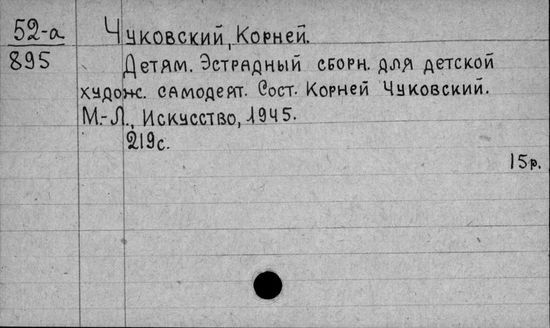 52-а
895
Чуковский, Корней.
Детям. Эстрадный сборн. для детской
худож. самодеят. Сост. Корней Чуковский.
М.-Л., Искусство, 1945.
219с.
15р.